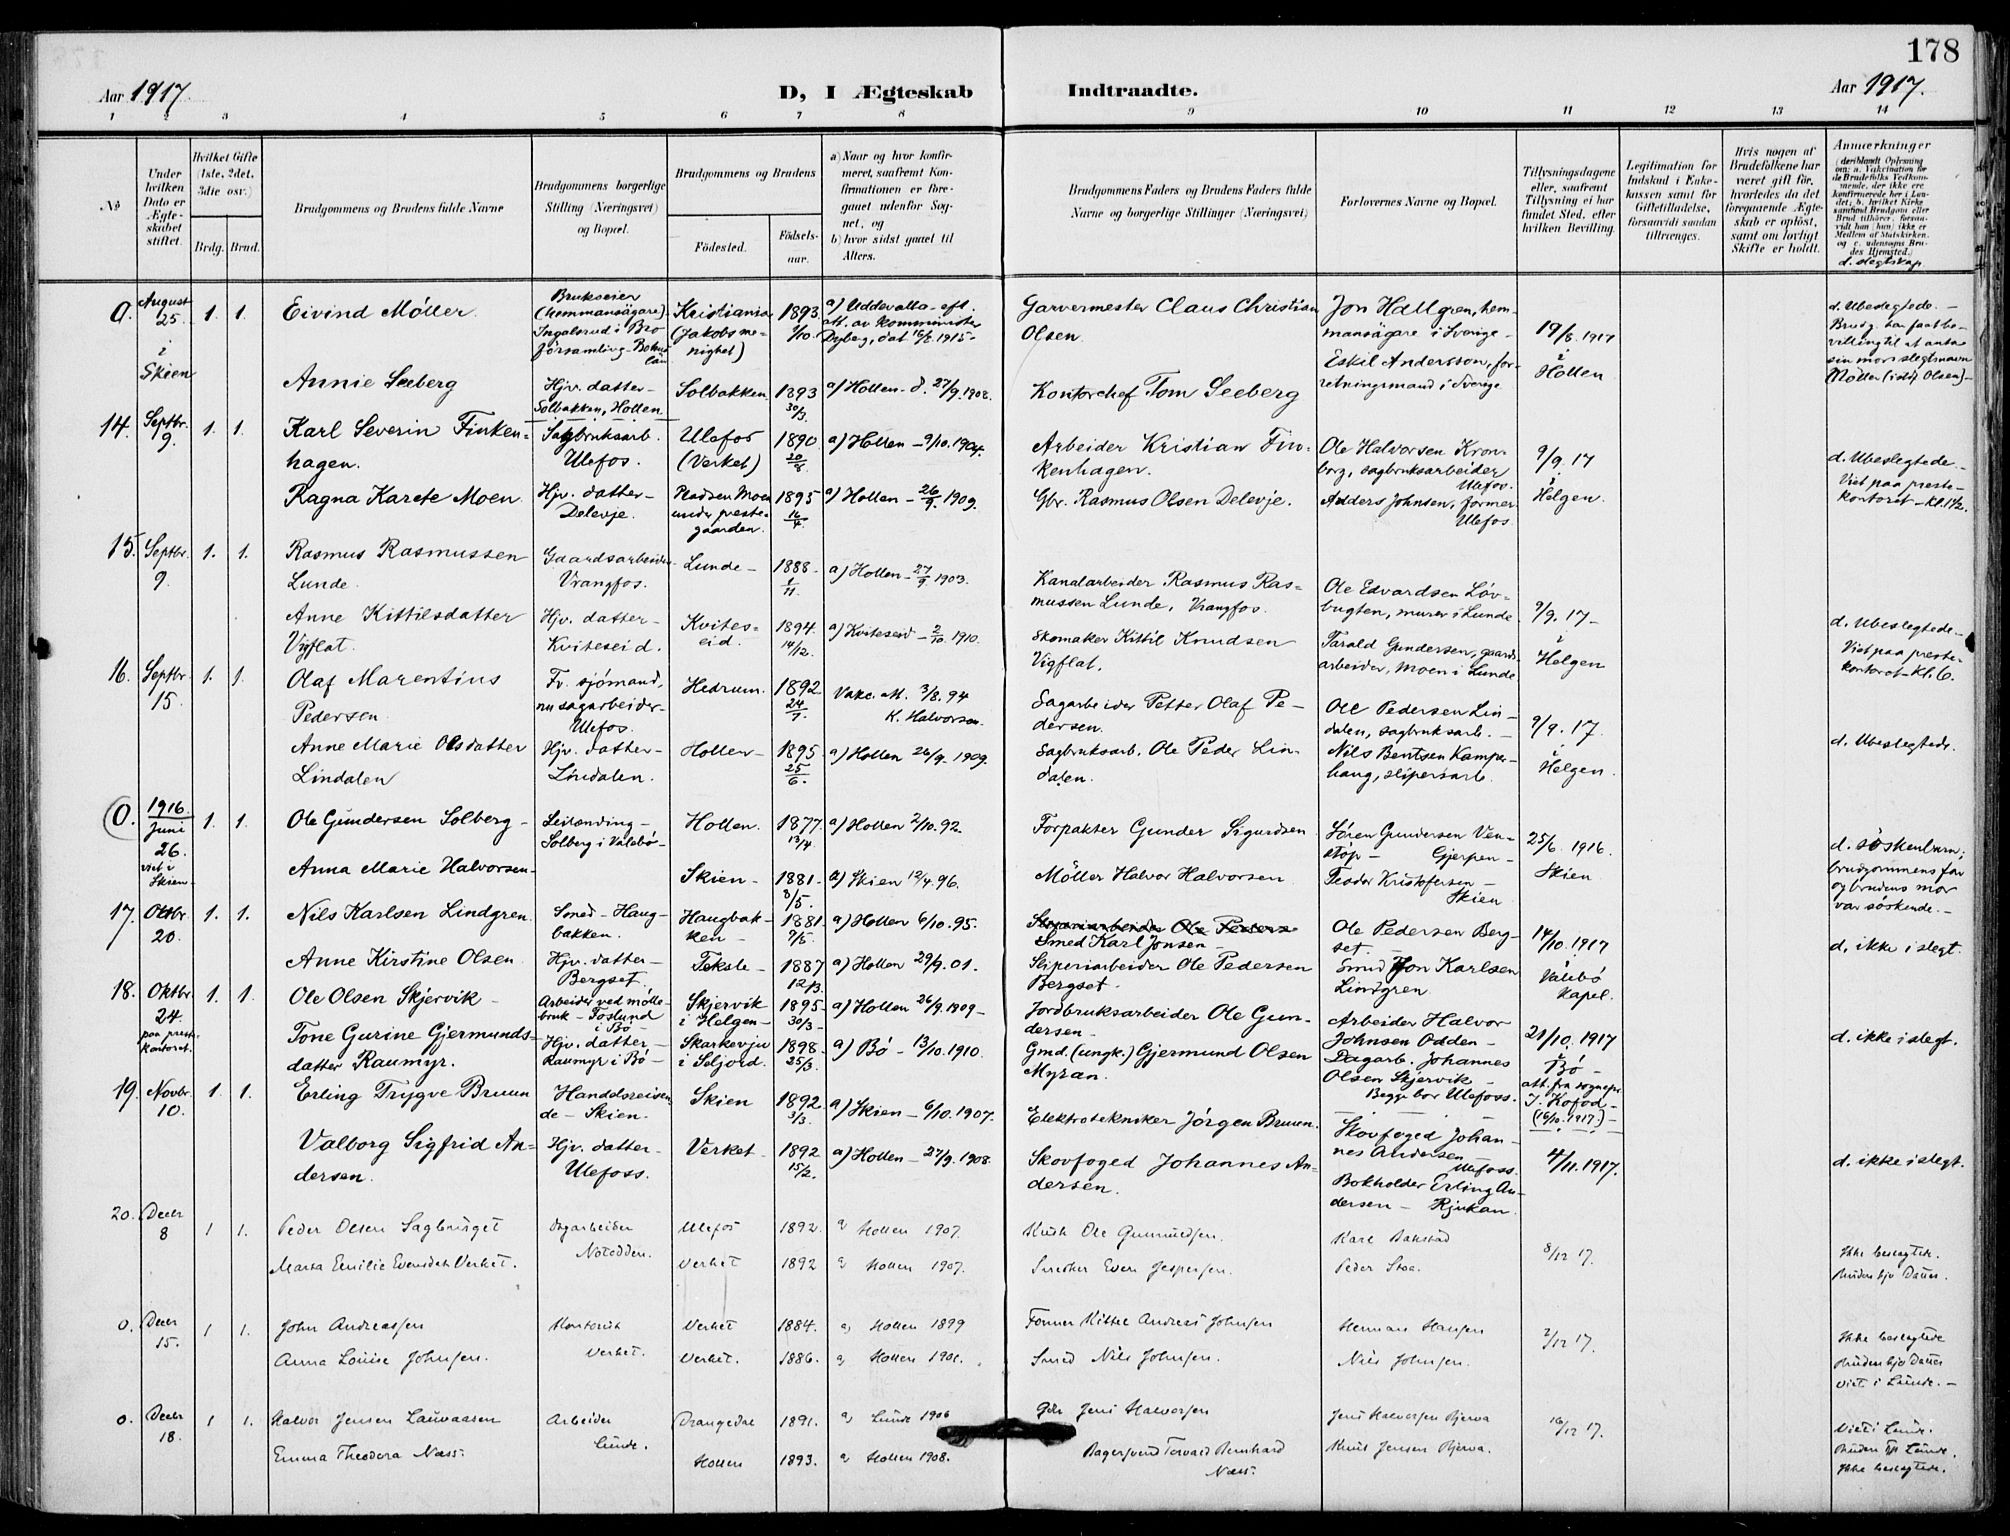 178
Aar 1917.
D, I Ægteskab
Indtraadte.
Aar 1917.
1 2 3 4 5 6 7 8 9 10 11 12 13 14
No
Under hvilken Dato er Ægteskabet stiftet.
Hvilket Gifte (1ste, 2det, 3die osv.)
Brdg. Brud.
Brudgommens og Brudens fulde Navne
Brudgommens borgerlige Stilling (Næringsvei) og Bopæl.
Brudgommens og Brudens
Fødested.
Fødselsaar.
a) Naar og hvor konfirmeret, saafremt Konfirmationen er foregaaet udenfor Sognet, og
b) hvor sidst gaaet til Alters.
Brudgommens Faders og Brudens Faders fulde Navne og borgerlige Stillinger (Næringsvei)
Forlovernes Navne og Bopæl.
Tillysningsdagene eller, saafremt Tillysning ei har fundet Sted, efter hvilken Bevilling.
Legitimation for Indskud i Enkekassen samt for Giftetilladelse, forsaavidt saadan tiltrænges.
Hvis nogen af Brudefolkene har været gift før, hvorledes da det foregaaende Ægteskab er opløst, samt om lovligt Skifte er holdt.
Anmærkninger
d. slegtskap
0. August 25. i Skien 1. 1. Eivind Möller. Brukseier (hemmansägare). Ingalsrud i Bro församling – Bohuslän Kristiania (Jakobs menighet) 1893 1/10. a) Uddevalla – eft. att. av komminister Dyberg, dat 16/8 1915 – Garvermester Claus Christian Olsen. Jon Hallgren, hemmansägare i Sverige – 19/8 1917 i Hollen d. Ubeslegtede. – Brudg. har faat bevilling til at anta sin mors slegtsnavn Möller (istf. Olsen) –
Annie Seeberg Hjv. datter – Solbakken, Hollen Solbakken 1893 30/3. a) Hollen – d. 27/9. 1908. Kontorchef Tom Seeberg Eskil Andersson, forretningsmand i Sverige
14. Septbr. 9. 1. 1. Karl Severin Finkenhagen. Sagbruksarb. Ulefos. Ulefos (Verket) 1890 20/8 a) Hollen – 9/10. 1904. Arbeider Kristian Finkenhagen. Ole Halvorsen Kronborg, sagbruksarbeider Ulefos. 9/9. 17 i Helgen. d. Ubeslegtede – Viet paa prestekontoret – kl. 1½.
Ragna Karete Moen Hjv. datter – Delevje. Pladsen Moen under prestegaarden. 1895 16/4 a) Hollen – 26/9. 1909. Gbr. Rasmus Olsen Delevje. Anders Johnsen, former Ulefos.
15. Septbr. 9. 1. 1. Rasmus Rasmussen Lunde. Gaardsarbeider Vrangfos. Lunde – 1888 – 1/11. a) Hollen – 27/9. 1903. Kanalarbeider Rasmus Rasmussen Lunde, Vrangfos. Ole Edvardsen Lövbugten, murer i Lunde 9/9. 17 – i Helgen d. Ubeslegtede – Viet paa prestekontoret – kl. 6.
Anne Kittilsdatter Vigflat. Hjv. datter – Kviteseid. Kviteseid. 1894. 14/12. a) Kviteseid – 2/10. 1910. Skomaker Kittil Knudsen Vigflat. Tarald Gundersen, gaardsarbeider, Moen i Lunde
16. Septbr 15. 1. 1. Olaf Marentius Pedersen Fv. sjömand, nu sagarbeider – Ulefos. Hedrum. 1892 24/7. Vakc. att. 3/8. 94 K. Halvorsen. Sagarbeider Petter Olaf Pedersen. Ole Pedersen Lindalen, sagbruksarb. – 9/9. 17. i Helgen. d. Ubeslegtede.
Anne Marie Olsdatter Lindalen Hjv. datter – Lindalen. Hollen – 1895 25/6. a) Hollen 26/9. 1909. Sagbruksarb. Ole Peder Lindalen. Nils Bentsen Kamperhaug, sliperiarb.
0. 1916 Juni 26. viet i Skien – 1. 1. Ole Gundersen Solberg – Leilænding – Solberg i Valebö – Hollen. 1877 13/4 a) Hollen 2/10. 92. Forpakter Gunder Sigurdsen Sören Gundersen Venstöp – Gjerpen – 25/6. 1916. Skien d. söskenbarn; brudgommens far og brudens mor var söskende. –
Anna Marie Halvorsen – Skien – 1881 – 3/5. a) Skien 12/4. 96. Möller Halvor Halvorsen Teodor Kristofersen – Skien
17. Oktbr. 20. 1. 1. Nils Karlsen Lindgren Smed – Haugbakken. Haugbakken – 1881. 7/5. a) Hollen 6/10. 95. Smed Karl Jonsen – Ole Pedersen Bergset. 14/10. 1917 Valebö kapel. d. ikke i slegt.
Anne Kirstine Olsen Hjv. datter – Bergset. Teksle – 1887 12/3. a) Hollen 29/9. 01. Sliperiarbeider Ole Pedersen Bergset. Smed Jon Karlsen Lindgren.
18. Oktbr. 24. paa prestekontoret. 1. 1. Ole Olsen Skjervik – Arbeider ved möllebruk – Foslund i Bö – Skjervik i Helgen – 1895 – 30/3 – a) Hollen 26/9. 1909 – Jordbruksarbeider Ole Gundersen – Arbeider Halvor Johnsen Odden – 21/10. 1917 i Bö – att. fra sognepr. J. Kofod – (16/10. 1917.) – d. ikke i slegt.
Tone Gurine Gjermundsdatter Raumyr. Hjv. datter – Raumyr i Bö – Skarkevju i Seljord. 1898. 25/3. a) Bö – 13/10. 1910. Gmd. (ungk.) Gjermund Olsen Myran. Dagarb. Johannes Olsen Skjervik – Begge bor Ulefoss.
19. Novbr. 10. 1. 1. Erling Trygve Bruun Handelsreisende – Skien. Skien 1892 3/3. a) Skien – 6/10. 1907. Elektrotekniker Jörgen Bruun. Skovfoged Johannes Andersen – Ulefoss. 4/11. 1917. d. ikke i slegt.
Valborg Sigfrid Andersen. Hjv. datter – Ulefoss. Verket – 1892 15/2. a) Hollen – 27/9. 1908. Skovfoged Johannes Andersen. Bokholder Erling Andersen – Rjukan.
20. Decbr 8 1 1. Peder Olsen Sagbruget Dagarbeider Notodden. Ulefos 1892. a) Hollen 1907. Kusk Ole Gunmundsen. Karl Bakstad 8/12 17. Ikke beslegtede.
Marta Emilie Evensdat Verket. Verket 1892 a) Hollen 1907. Snedker Even Jespersen. Peder Stoa.
0. Decbr 15. 1 1. John Andreassen Kontorist Verket. Verket 1884. a) Hollen 1899 Former Kittel Andreas Johnsen Herman Hansen 2/12 17. Ikke beslegtede
Anna Louise Johnsen. Verket. 1886. a) Hollen 1901. Smed Nils Johnsen. Nils Johnsen. Viet i Lunde. –
0. Decbr 18. 1 1. Halvor Jensen Lauvaasen Arbeider Lunde. Drangedal 1891. a) Lunde 1906 Gbr. Jens Halvorsen Jens Halvorsen Bjerva 16/12 17. Viet i Lunde.
Emma Theodora Næss. Hollen 1893. a) Hollen 1908. Bagersvend Torvald Bernhard Næss. Knut Jensen Bjerva. Ikke beslegtede.